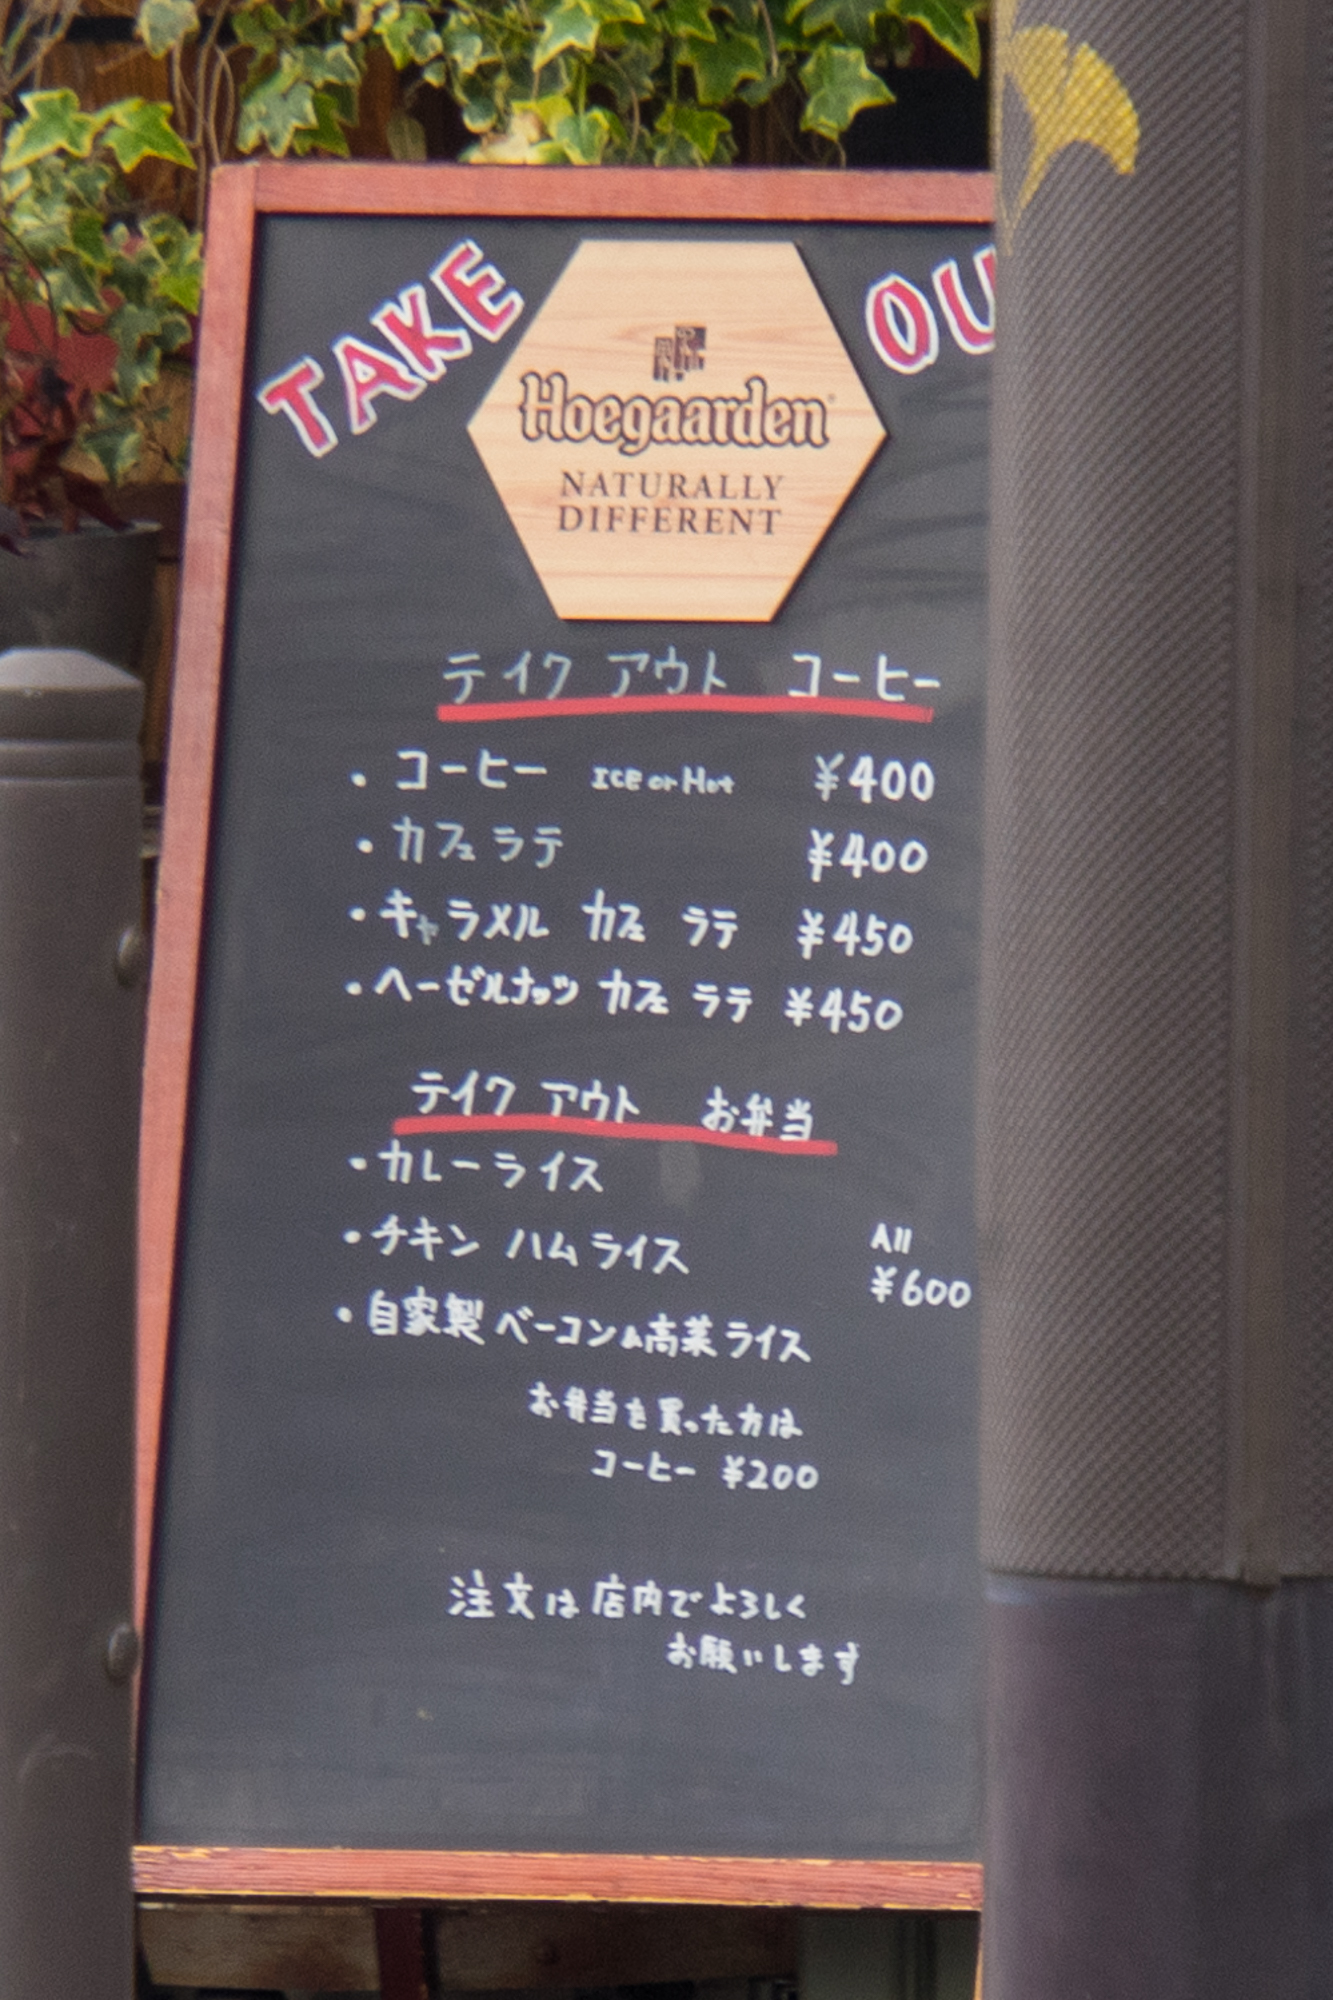 TAKE OU
Hoegaarden
NATURALLY
DIFFERENT
テイク アウト コーヒー
・コーヒー ICE or Hot ¥400
・カフェラテ ¥400
・キャラメル カフェ ラテ ¥450
・ヘーゼルナッツ カフェ ラテ ¥450
テイク アウト お弁当
・カレーライス
・チキン ハムライス
All
¥600
・自家製 ベーコン&高菜ライス
お弁当を買った方は
コーヒー ¥200
注文は店内でよろしく
お願いします